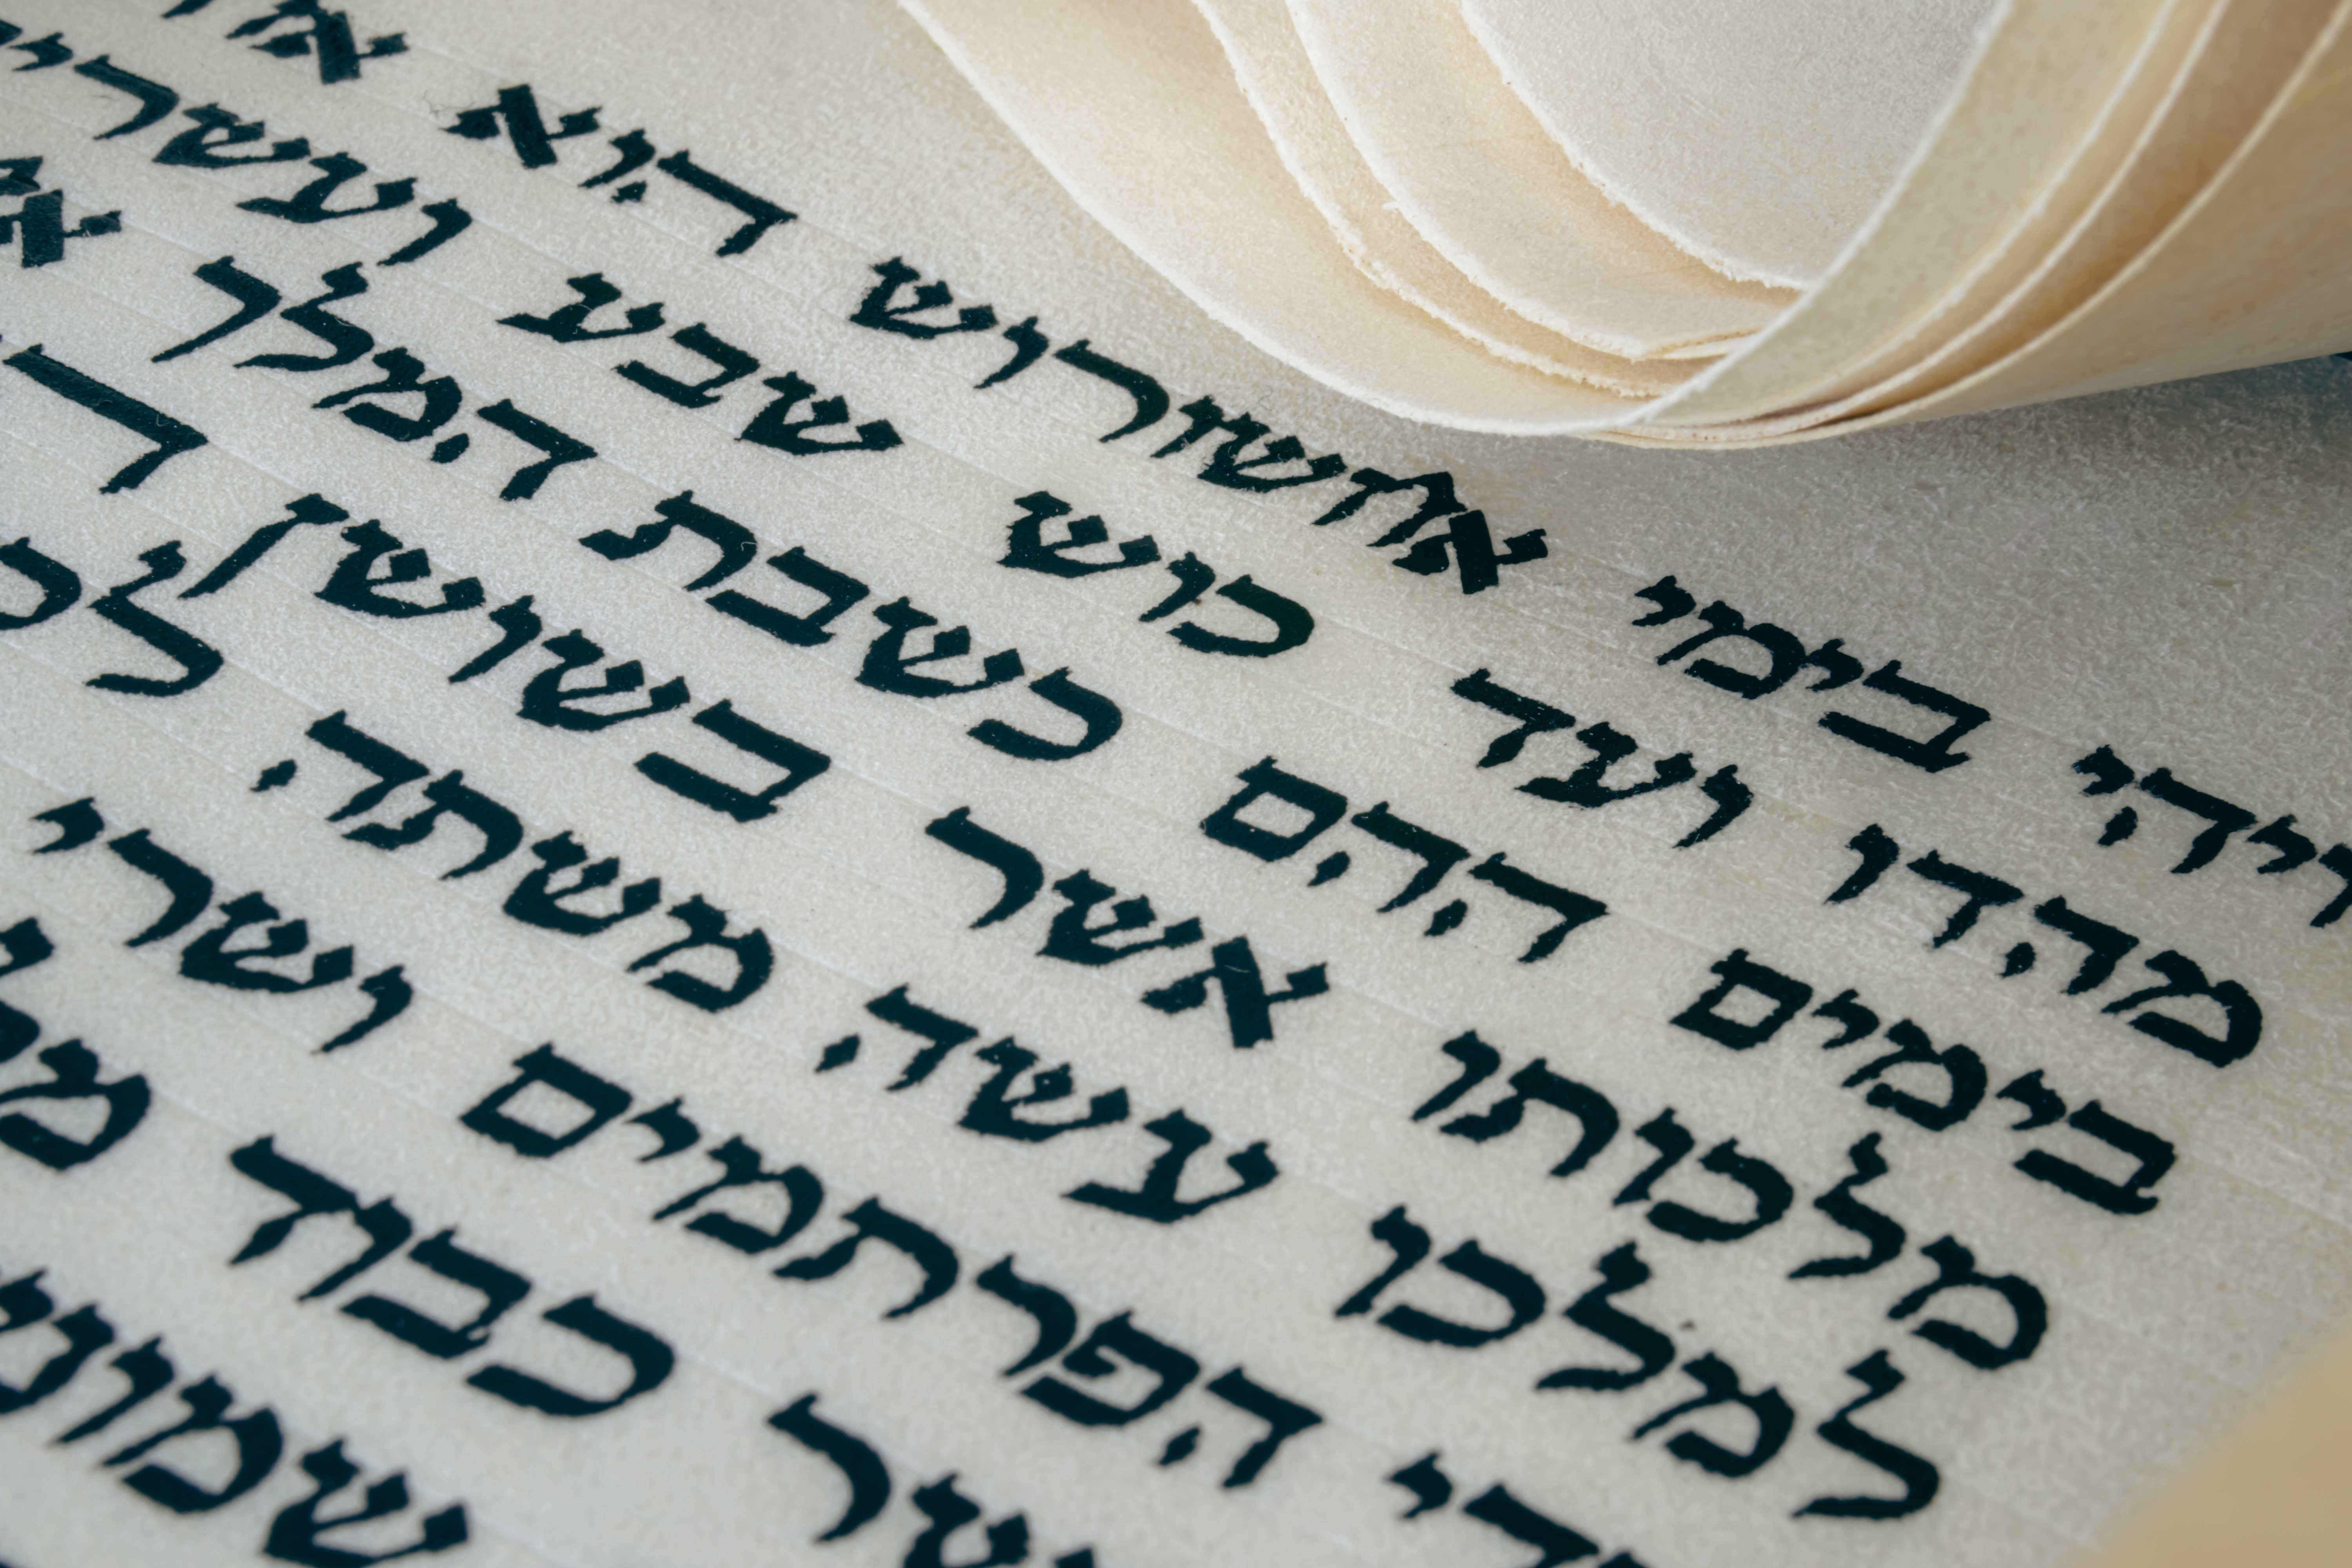 ויהי בימי אחשורוש הוא
מהדו ועד כוש שבע
בימים ההם כשבת המלך
מלכותו אשר בשושן
למלכו עשה משתה
הפרתמים ושרי
כבוד